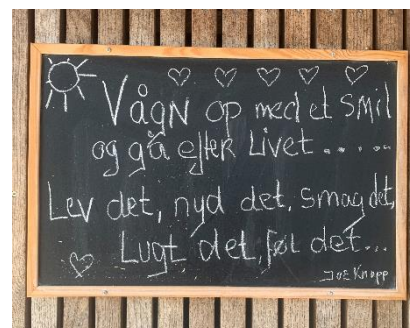 Vågn op med et smil
og gå efter Livet.....
Lev det, nyd det, smag det,
Lugt det, føl det...
Joe Knapp